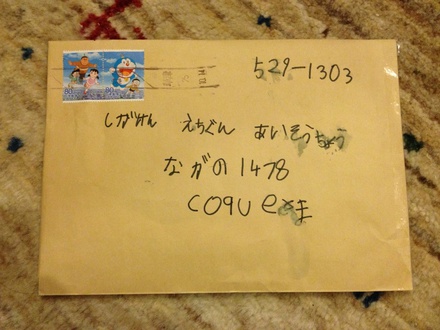 80 80
529-1303
しがけん えちぐん あいそうちょう
ながの1478
coqu exま